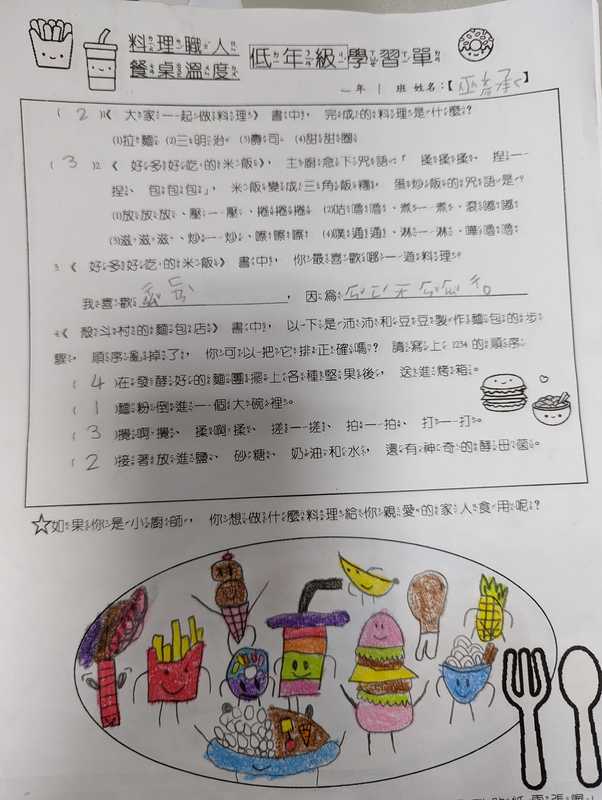 料理職人
餐桌溫度
低年級學習單
一年 1 班 姓名:【巫 承】
( 2 )1《 大家一起做料理》 書中, 完成的料理是什麼?
(1)拉麵 (2)三明治 (3)壽司 (4)甜甜圈
( 3 )2 《 好多好吃的米飯》, 主廚念下咒語「 揉揉揉、 捏一
捏、 包包包」, 米飯變成三角飯糰, 蛋炒飯的咒語是?
(1)放放放、壓一壓、捲捲捲 (2)咕嚕嚕、煮一煮、滾嘟嘟
(3)滋滋滋、炒一炒、嚓嚓嚓 (4)噗通通、淋一淋、嘩嚕嚕
3 《 好多好吃的米飯》 書中, 你最喜歡哪一道料理?
我喜歡 , 因為
4《 殼斗村的麵包店》 書中, 以下是沛沛和豆豆製作麵包的步
驟, 順序亂掉了, 你可以把它排正確嗎? 請寫上 1234 的順序
( 4 )在發酵好的麵團擺上各種堅果後, 送進烤箱。
( 1 )麵粉倒進一個大碗裡。
( 3 )攪啊攪、 揉啊揉、 搓一搓、 拍一拍、 打一打。
( 2 )接著放進鹽、 砂糖、 奶油和水, 還有神奇的酵母菌。
☆如果你是小廚師, 你想做什麼料理給你親愛的家人食用呢?